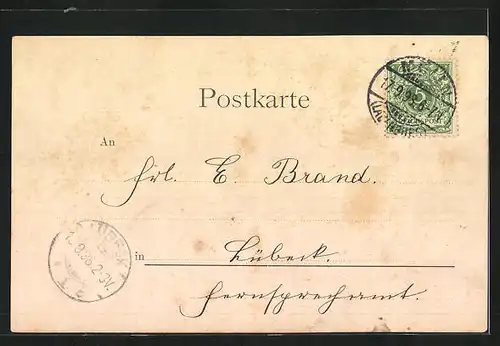 Postkarte
An
Frl. E. Brand.
in Lübeck.
Fernsprechamt.